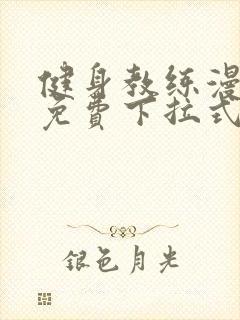 健身教练漫
免費下拉式
银色月光